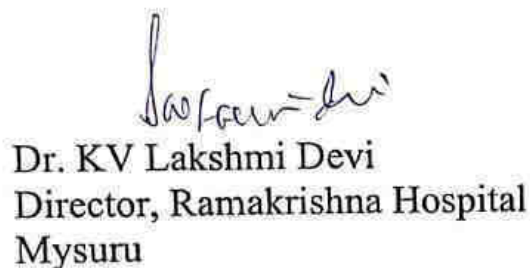 Dr. KV Lakshmi Devi
Director, Ramakrishna Hospital
Mysuru